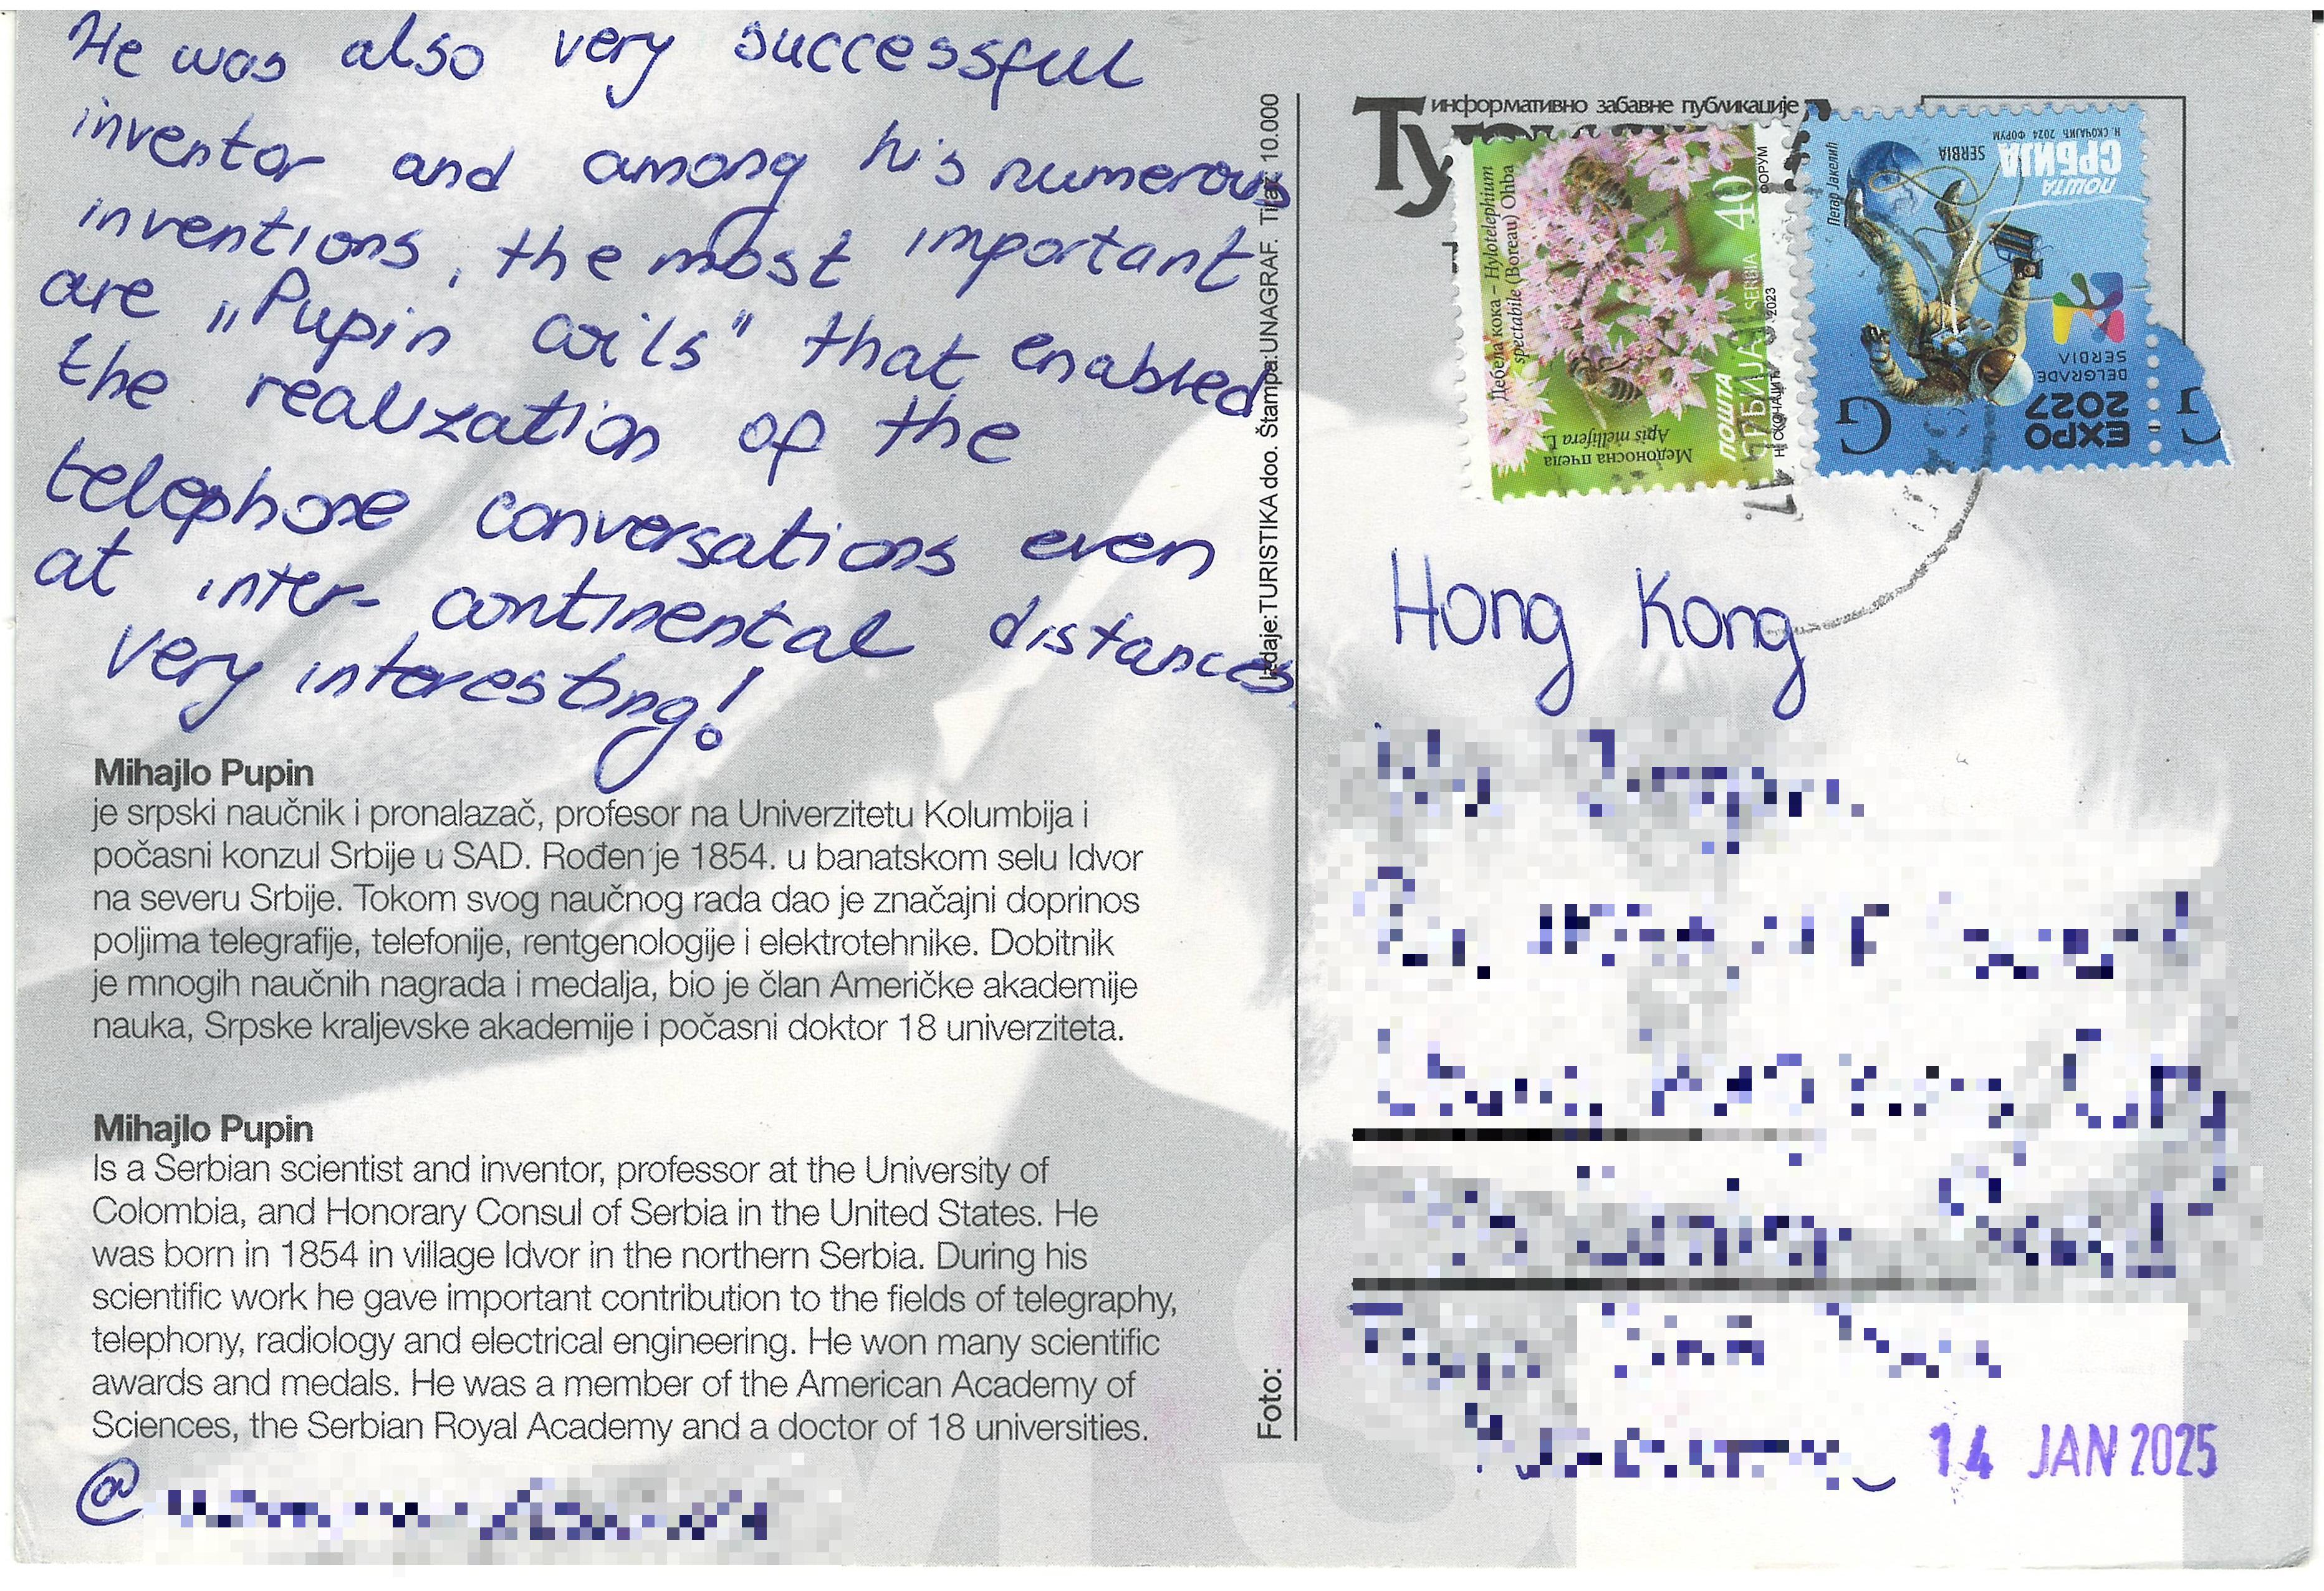 He was also very successful
inventor and among his numerous
inventions, the most important
are „Pupin coils" that enabled
the realization of the
telephone conversations even
at inter- continental distances.
very interesting!
Mihajlo Pupin
je srpski naučnik i pronalazač, profesor na Univerzitetu Kolumbija i
počasni konzul Srbije u SAD. Rođen je 1854. u banatskom selu Idvor
na severu Srbije. Tokom svog naučnog rada dao je značajni doprinos
poljima telegrafije, telefonije, rentgenologije i elektrotehnike. Dobitnik
je mnogih naučnih nagrada i medalja, bio je član Američke akademije
nauka, Srpske kraljevske akademije i počasni doktor 18 univerziteta.
Mihajlo Pupin
Is a Serbian scientist and inventor, professor at the University of
Colombia, and Honorary Consul of Serbia in the United States. He
was born in 1854 in village Idvor in the northern Serbia. During his
scientific work he gave important contribution to the fields of telegraphy,
telephony, radiology and electrical engineering. He won many scientific
awards and medals. He was a member of the American Academy of
Sciences, the Serbian Royal Academy and a doctor of 18 universities.
@
Foto:
Izdaje: TURISTIKA doo. Štampa: UNAGRAF. Tiraž: 10.000
информативно забавне публикације
Дебела кока – Hylotelephium
spectabile (Boreau) Ohba
Медоносна пчела
Apis mellifera L.
40
ПОШТА
СРБИЈА SERBIA
ФОРУМ
2023
Н. СКОЧАЈИЋ 2024 ФОРУМ
ПОШТА
СРБИЈА
SERBIA
Петар Јакелић
EXPO
2027
BELGRADE
SERBIA
G
17
Hong Kong
14 JAN 2025